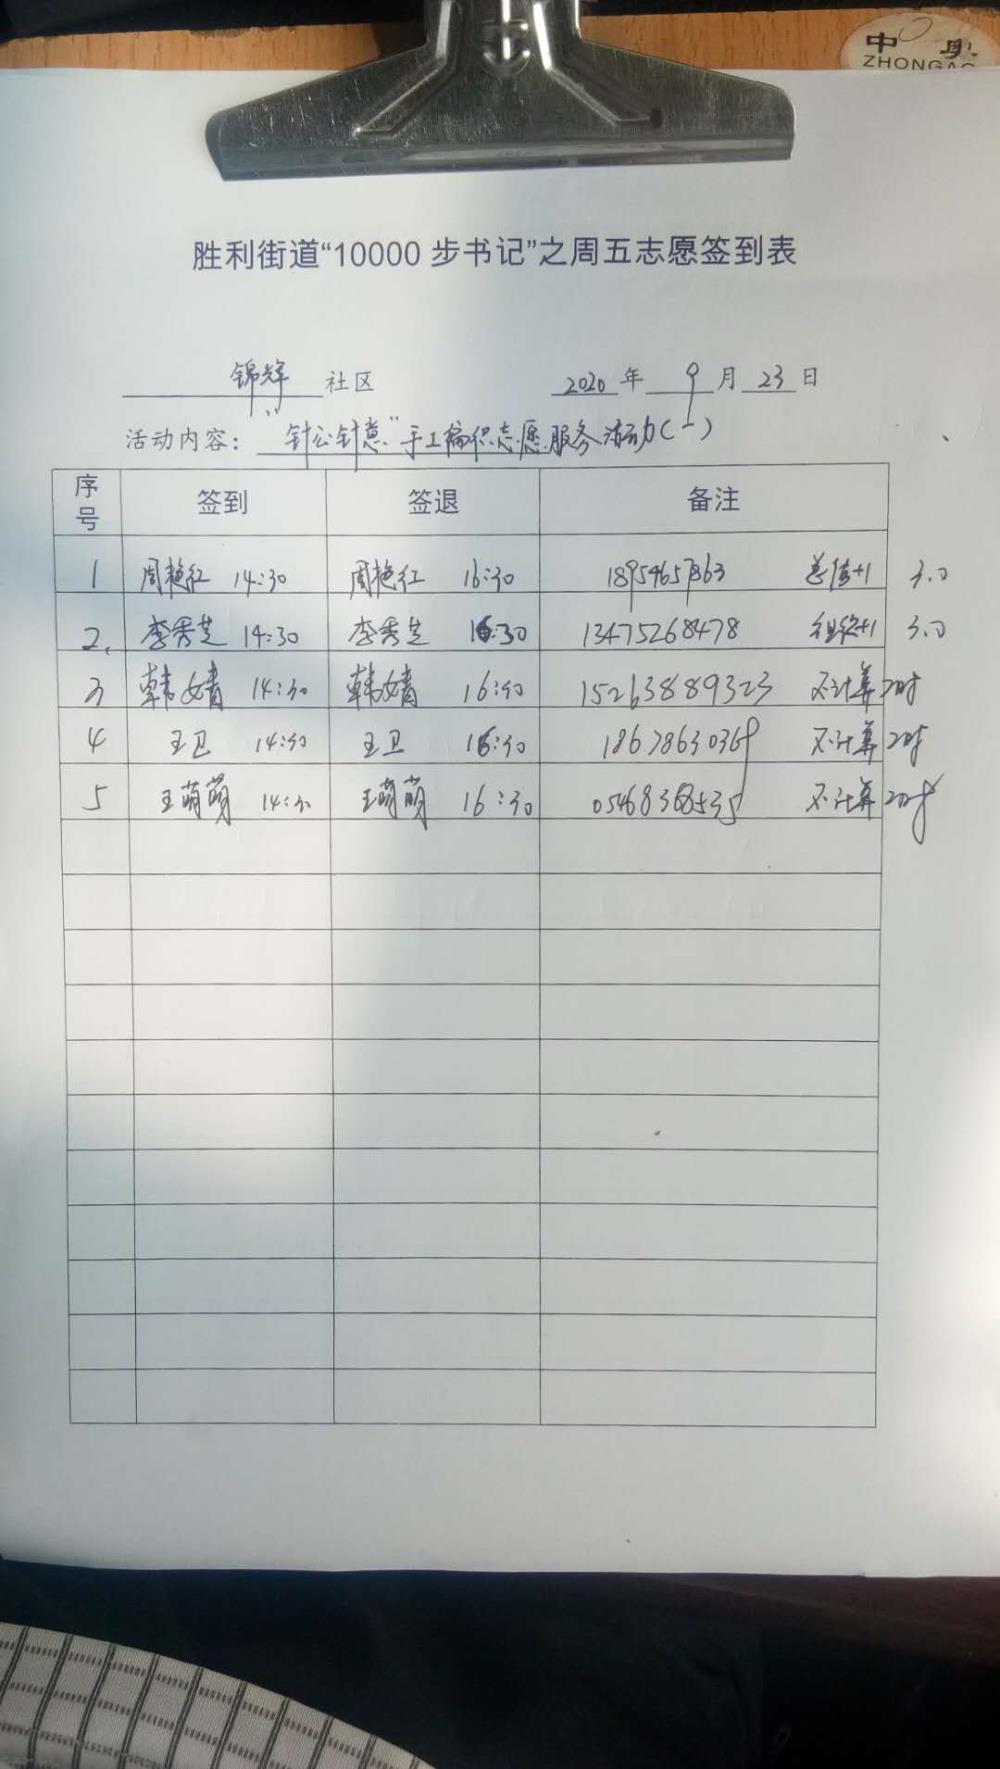 中奥
ZHONGAO
胜利街道“10000 步书记”之周五志愿签到表
锦辉 社区 2020 年 9 月 23 日
活动内容： “针公针意”手工编织志愿服务活动(一)
序号 签到 签退 备注
1 周艳红 14:30 周艳红 16:30 18954657863 +1 3.0
2. 李秀芝 14:30 李秀芝 16:30 13475268478 组织+1 3.0
3 韩婧 14:30 韩婧 16:30 15263889323 不计算工时
4 王卫 14:30 王卫 16:30 18678630369 不计算工时
5 王萌萌 14:30 王萌萌 16:30 05468368535 不计算工时